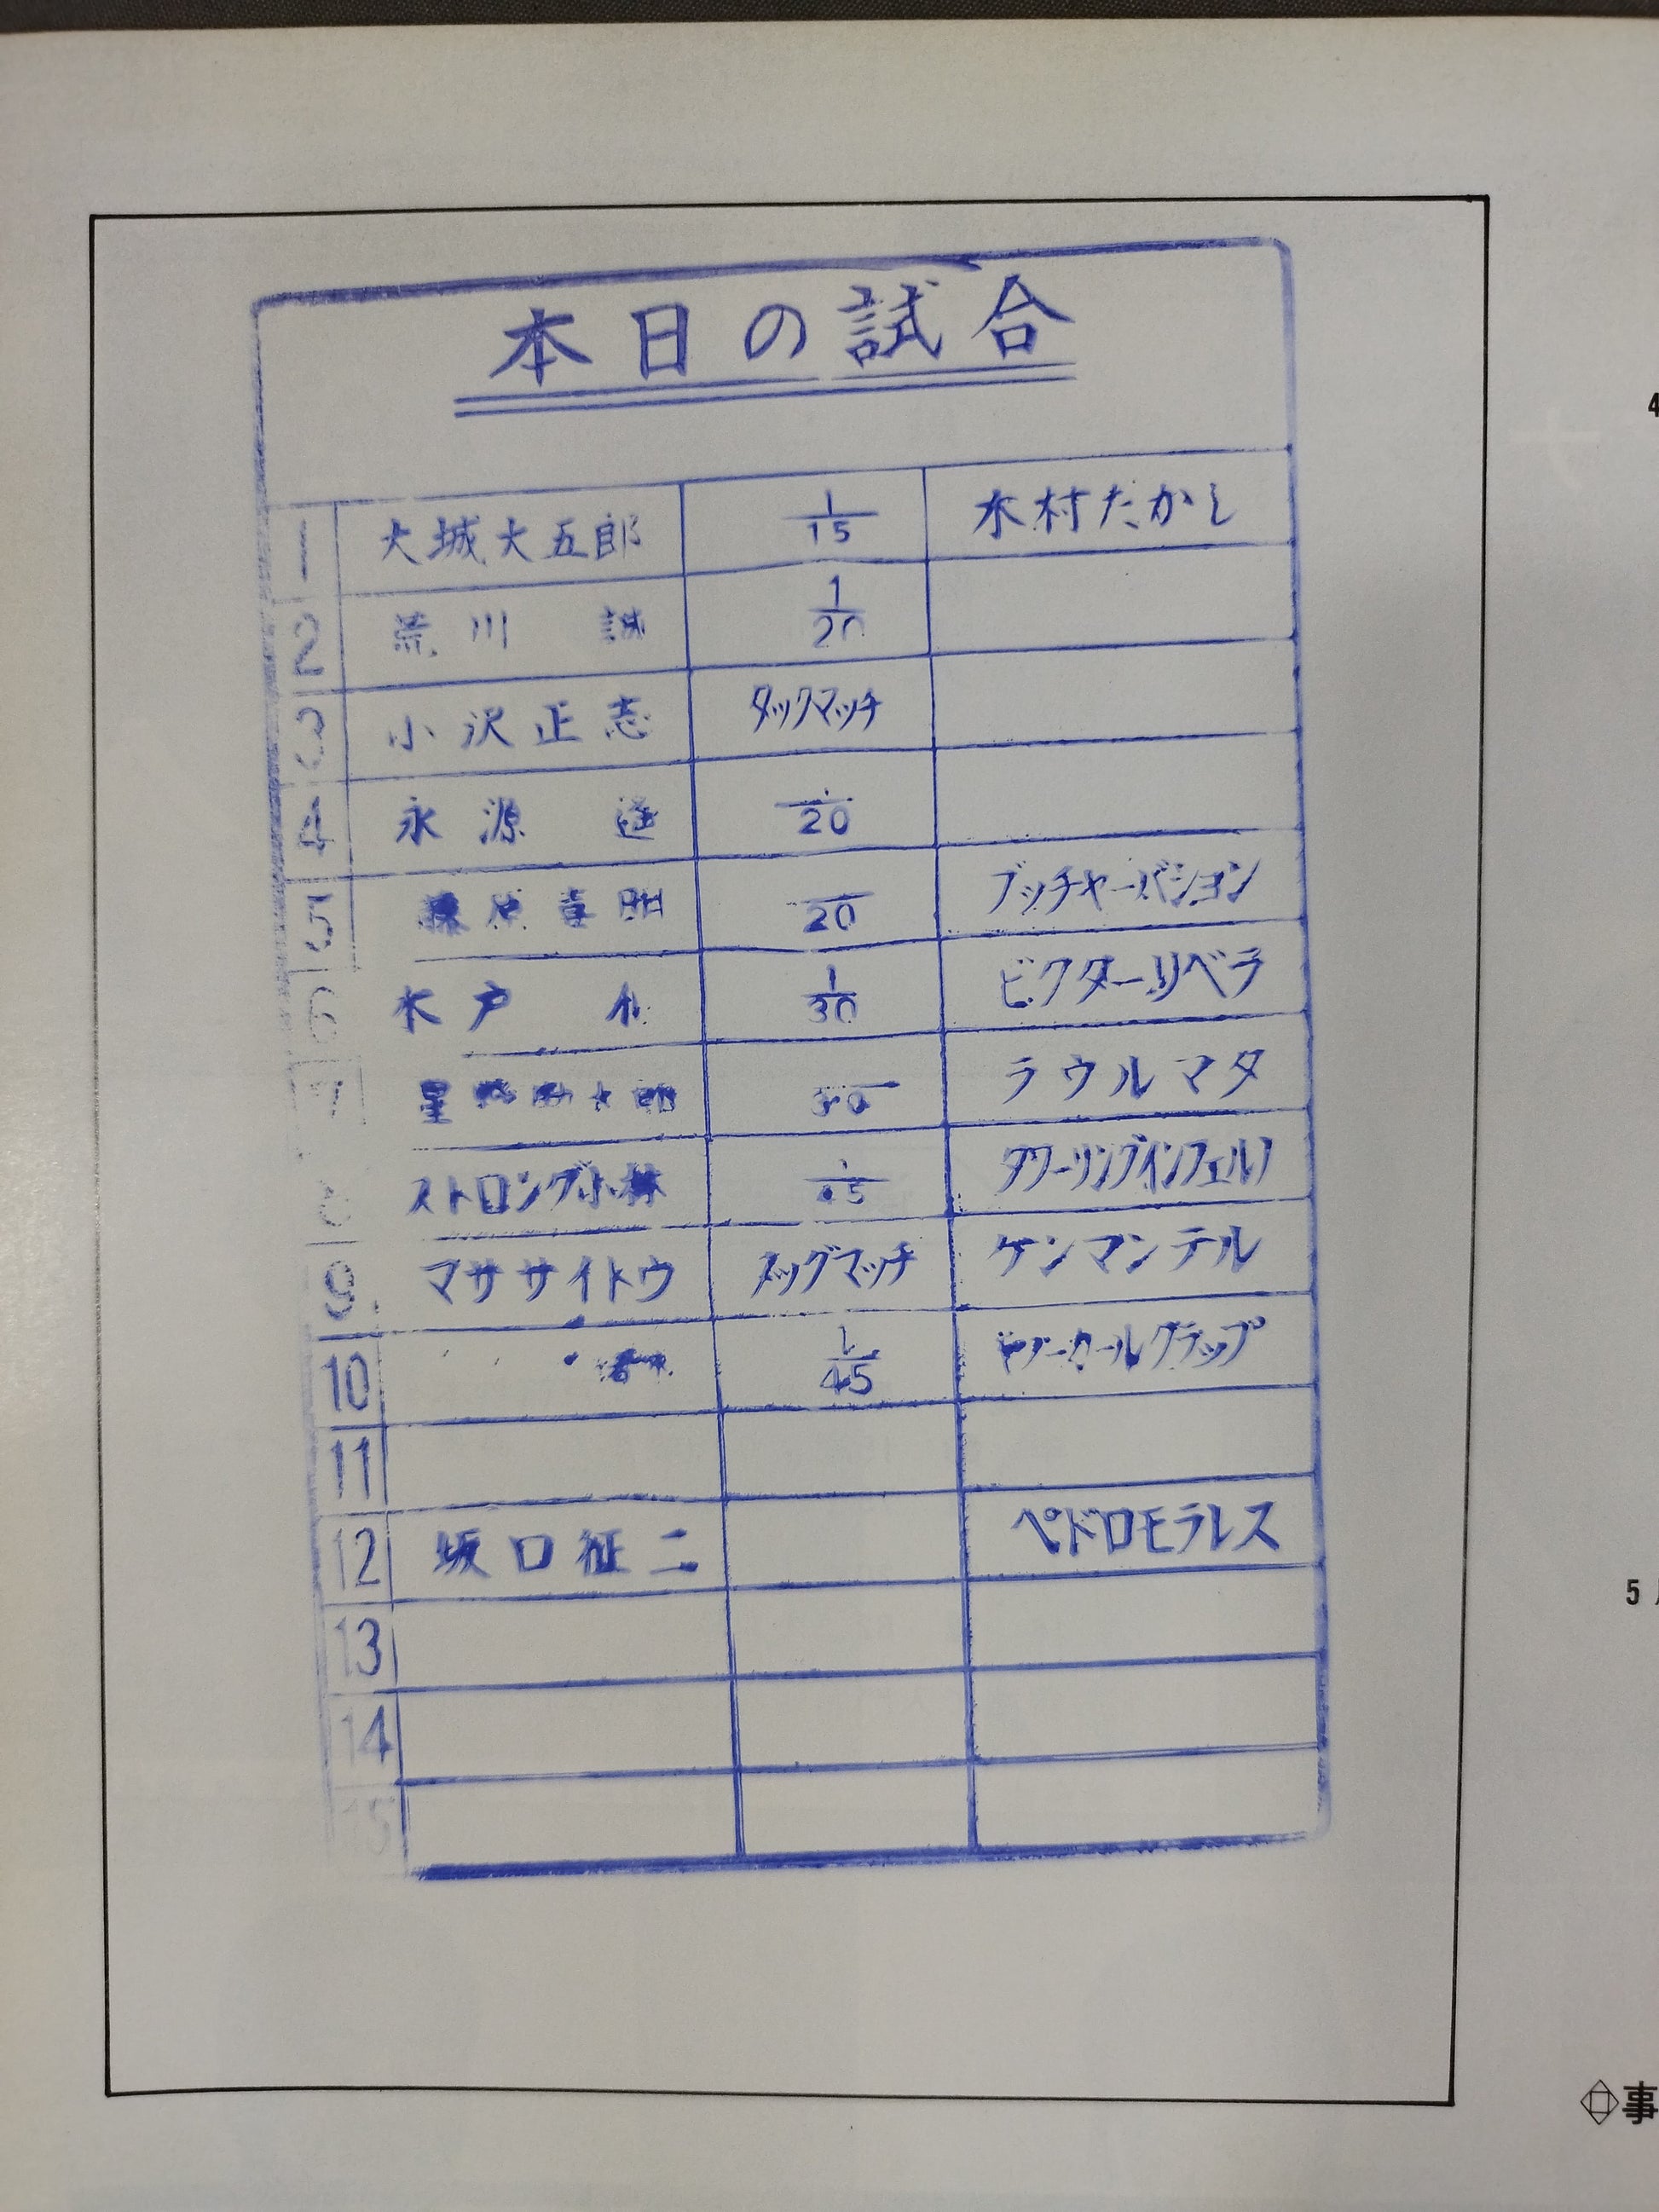 本日の試合
1 大城大五郎 1/15 木村たかし
2 荒川 誠 1/20
3 小沢正志 タッグマッチ
4 永源 遥 20
5 藤原喜明 20 ブッチャーバション
6 木戸 修 1/30 ビクターリベラ
7 星野勘太郎 30 ラウルマタ
8 ストロング小林 45 タワーリングインフェルノ
9 マササイトウ タッグマッチ ケンマンテル
10 1/45
11
12 坂口征二 ペドロモラレス
13
14
15
4
5
事